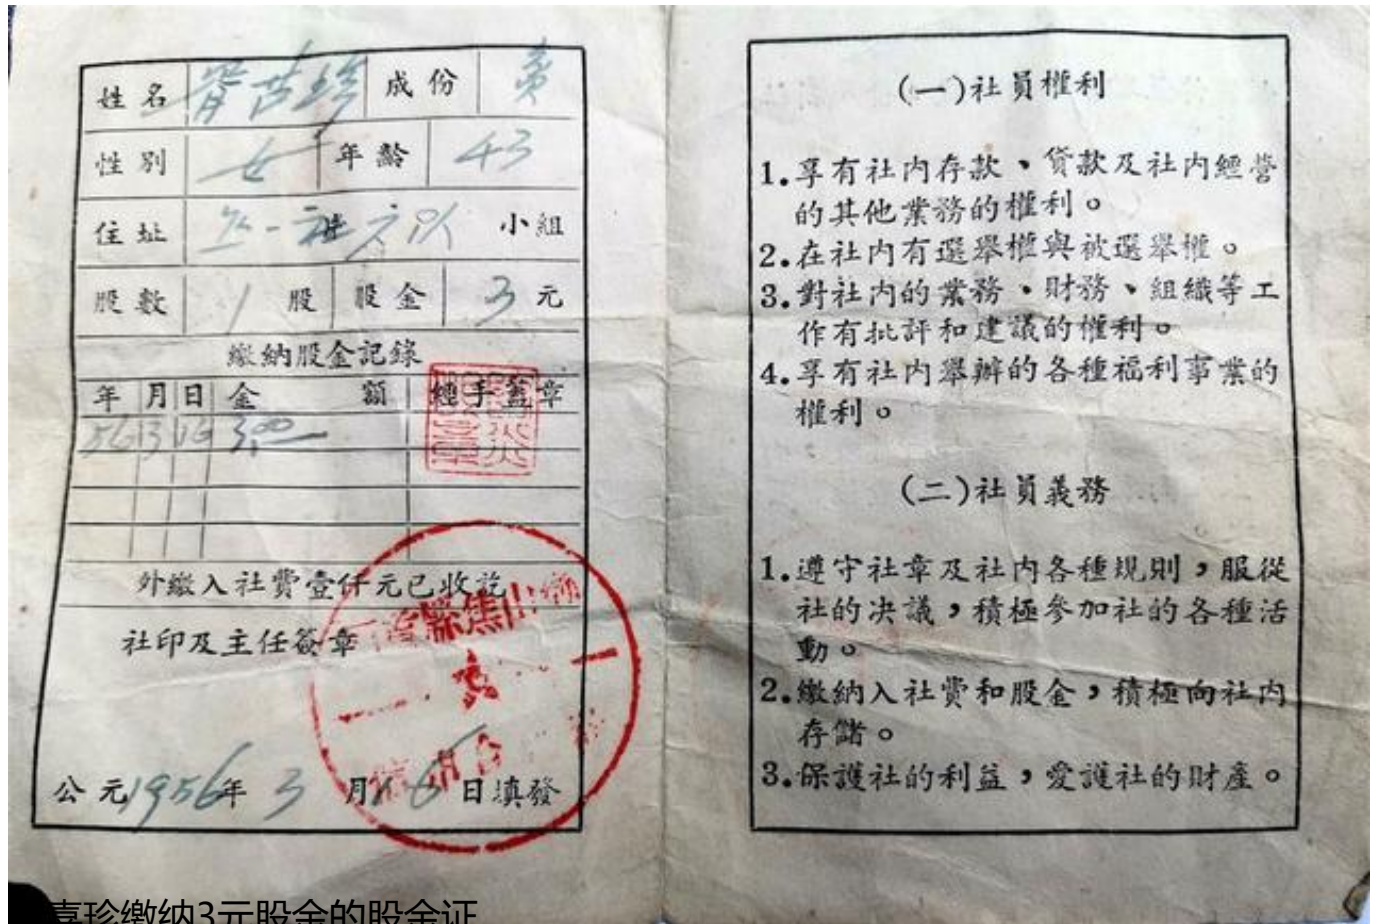 姓名 成份
性別 女 年齡 43
住址 一社 小組
股數 1 股 股金 3 元
繳納股金記錄
年 月 日 金 額 經手蓋章
56 3 16 3.00
外繳入社費壹仟元已收訖
社印及主任簽章
縣焦山鄉
公元1956年 3 月16日填發
(一)社員權利
1.享有社內存款、貸款及社內經營
的其他業務的權利。
2.在社內有選舉權與被選舉權。
3.對社內的業務、財務、組織等工
作有批評和建議的權利。
4.享有社內舉辦的各種福利事業的
權利。
(二)社員義務
1.遵守社章及社內各種規則,服從
社的決議,積極參加社的各種活
動。
2.繳納入社費和股金,積極向社內
存儲。
3.保護社的利益,愛護社的財產。
喜珍缴纳3元股金的股金证